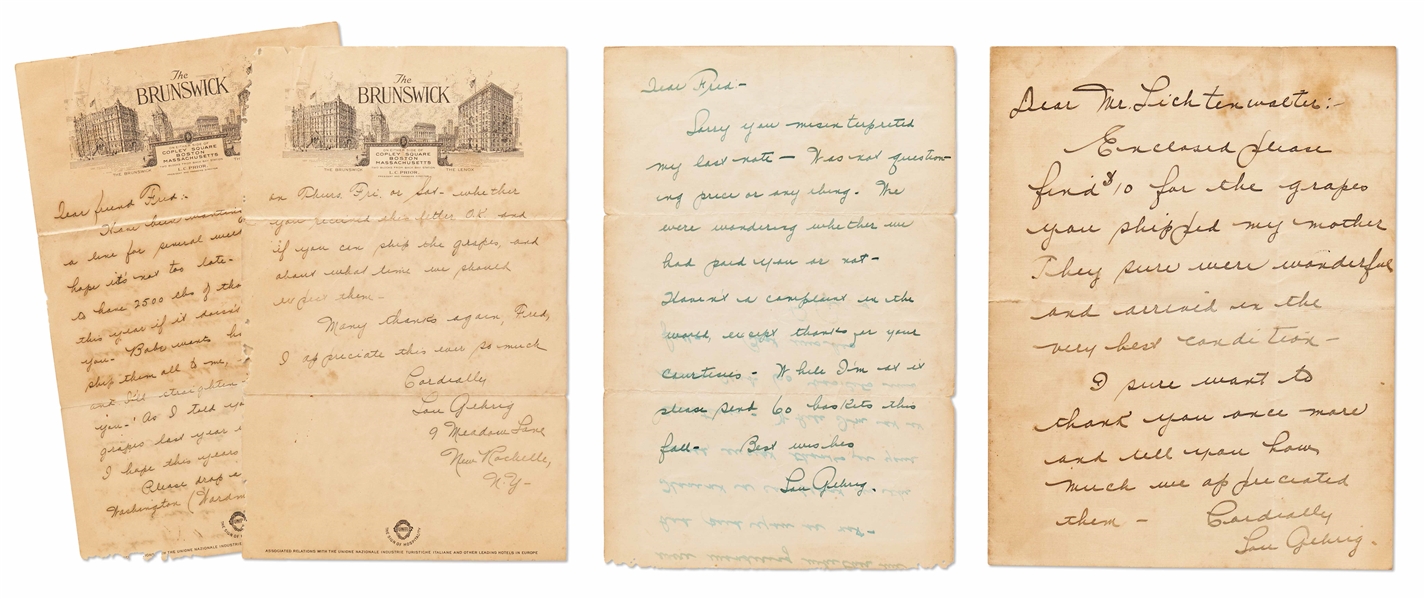 The
BRUNSWICK
COPLEY SQUARE
BOSTON
MASSACHUSETTS
L.C. PRIOR
THE BRUNSWICK
Dear friend Fred:-
Have been wanting
a line for several
hope it's not too late-
to have 2500 lbs of
this year if it doesn't
you- Babe wants
ship them all to me,
and I'll straighten
you-' As I told
grapes last year
I hope this years
Please drop
Washington
The
BRUNSWICK
COPLEY SQUARE
BOSTON
MASSACHUSETTS
L.C. PRIOR
THE BRUNSWICK
THE LENOX
on Thurs, Fri. or Sat- whether
you received this letter O.K. and
if you can ship the grapes, and
about what time we should
expect them-
Many thanks again, Fred,
I appreciate this ever so much
Cordially
Lou Gehrig
9 Meadow Lane
New Rochelle,
N.Y-
ASSOCIATED RELATIONS WITH THE UNIONE NAZIONALE INDUSTRIE TURISTICHE ITALIANE AND OTHER LEADING HOTELS IN EUROPE
Dear Fred:-
Sorry you misinterpreted
my last note- Was not question-
ing price or any thing. We
were wondering whether we
had paid you or not-
Haven't a complaint in the
world, except thanks for your
courtesies- While I'm at it
please send 60 baskets this
fall- Best wishes
Lou Gehrig.
Dear Mr. Lichtenwalter:-
Enclosed please
find $10 for the grapes
you shipped my mother
They sure were wonderful
and arrived in the
very best condition-
I sure want to
thank you once more
and tell you how
much we appreciated
them- Cordially
Lou Gehrig.